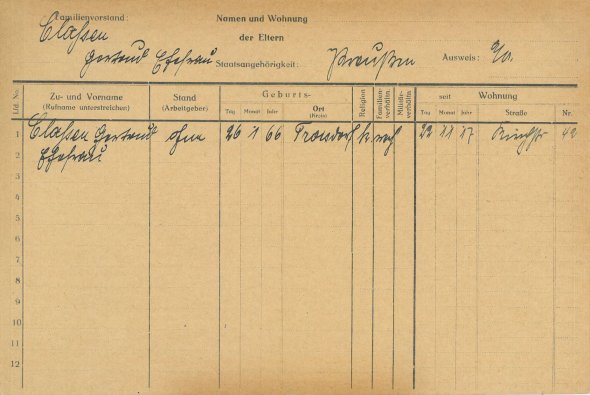 Familienvorstand: Namen und Wohnung
der Eltern
Classen
Gertrud Ehefrau Staatsangehörigkeit: Preußen Ausweis:
Lfd. No. Zu- und Vorname (Rufname unterstreichen) Stand (Arbeitgeber) Geburts- Tag Monat Jahr Ort (Kreis) Religion Familien-verhältn. Militär-verhältn. seit Tag Monat Jahr Wohnung Straße Nr.
1 Classen Gertrud ohne 26 1 66 Troisdorf k. verh 22 11 17 Kirchstr 42
2 Ehefrau
3
4
5
6
7
8
9
10
11
12